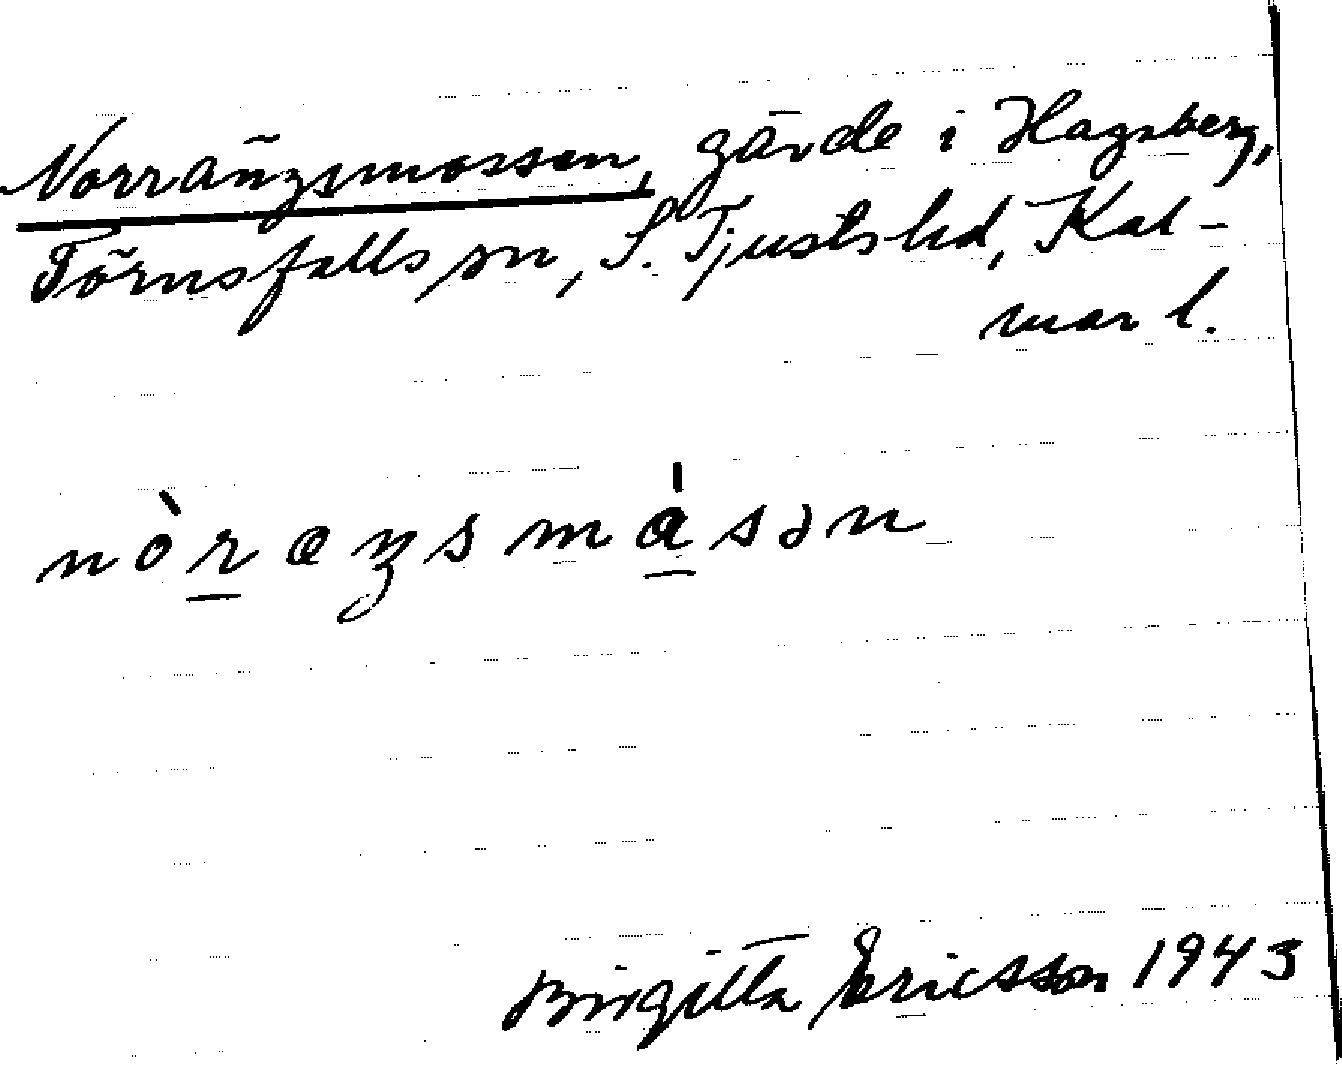 Norrängsmossen, gärde i Hagsberg,
Törnsfalls sn, S. Tjusts hd, Kal-
mar l.
nòræŋsmásən
Birgitta Ericsson 1943